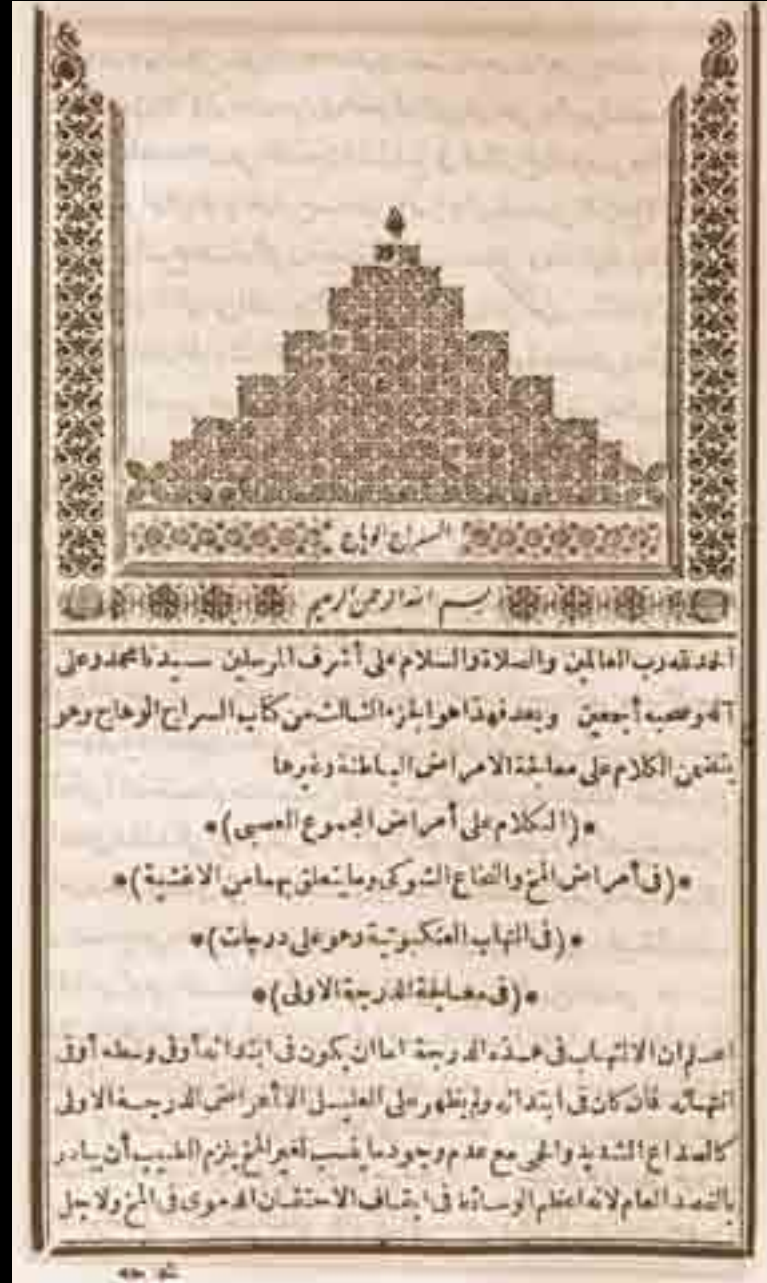 السراج الوهاج
بسم الله الرحمن الرحيم
الحمد لله رب العالمين والصلاة والسلام على أشرف المرسلين سيدنا محمد وعلى
آله وصحبه أجمعين وبعد فهذا هو الجزء الثالث من كتاب السراج الوهاج وهو
يتضمن الكلام على معالجة الامراض الباطنة وغيرها
*(الكلام على أمراض المجموع العصبى)*
*(فى أمراض المخ والنخاع الشوكى وما يتعلق بهما من الاغشية)*
*(فى التهاب العنكبوتية وهو على درجات)*
*(فى معالجة الدرجة الاولى)*
اعلم ان الالتهاب فى هذه الدرجة اما ان يكون فى ابتدائه أو فى وسطه أو فى
انتهائه فان كان فى ابتدائه ولم يظهر على العليل الا أعراض الدرجة الاولى
كالصداع الشديد والحمى مع عدم وجود ما ينسب لغير المخ يلزم الطبيب أن يبادر
بالفصد العام لانه أعظم الوسائط فى ايقاف الاحتقان الدموى فى المخ ولاجل